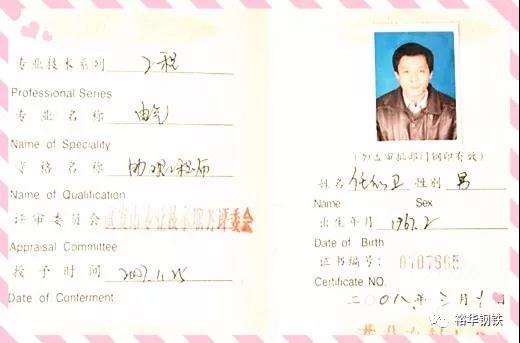 专业技术系列 工程
Professional Series
专业名称 电气
Name of Speciality
资格名称 助理工程师
Name of Qualification
评审委员会 专业技术职务评委会
Appraisal Committee
授予时间 2007.11.25
Date of Conferment
(加盖审批部门钢印有效)
姓名 任 卫 性别 男
Name Sex
出生年月 1967.2
Date of Birth
证书编号: 0707965
Certificate NO.
二〇〇八年三月 日
裕华钢铁